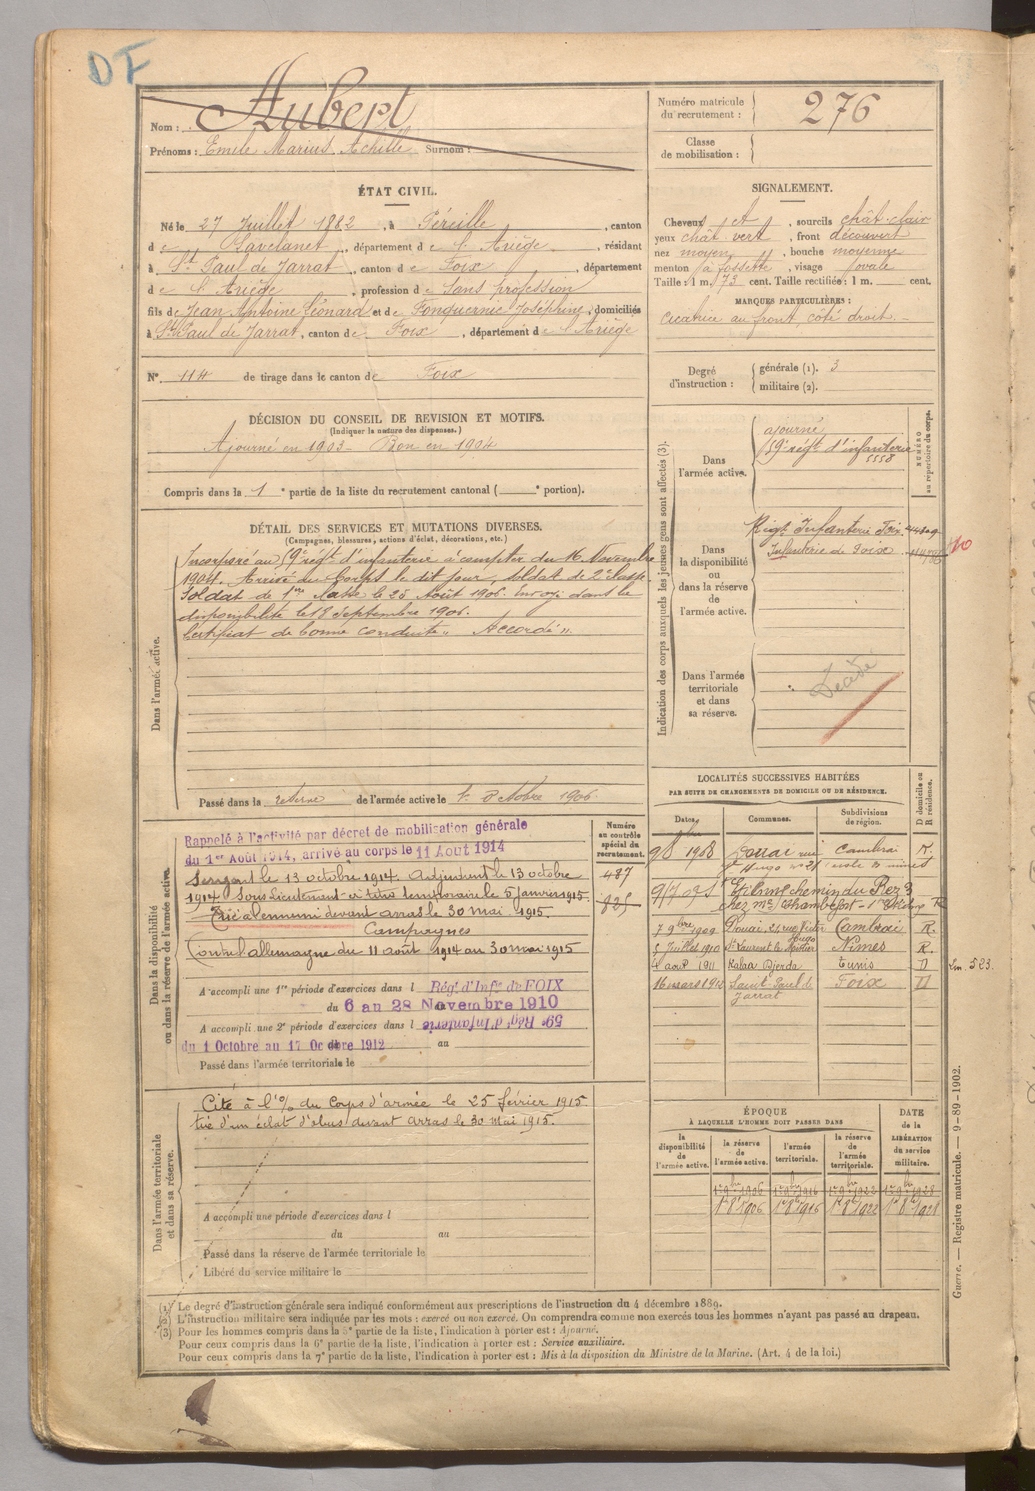 DF
Nom : Aubert
Prénoms : Emile Marius Achille Surnom :
Numéro matricule du recrutement : 276
Classe de mobilisation :
ÉTAT CIVIL.
Né le 27 Juillet 1882, à Péreille, canton
de Lavelanet, département de l'Ariège, résidant
à St Paul de Jarrat, canton de Foix, département
de l'Ariège, profession de Sans profession
fils de Jean Antoine Léonard et de Fonquernie Joséphine, domiciliés
à St Paul de Jarrat, canton de Foix, département de l'Ariège
N° 114 de tirage dans le canton de Foix
SIGNALEMENT.
Cheveux et, sourcils chât-clair
yeux chât. vert, front découvert
nez moyen, bouche moyenne
menton à fossette, visage ovale
Taille : 1 m. 73 cent. Taille rectifiée : 1 m. cent.
MARQUES PARTICULIÈRES :
Cicatrice au front, côté droit.
Degré d'instruction : générale (1). 3
militaire (2).
DÉCISION DU CONSEIL DE REVISION ET MOTIFS.
(Indiquer la nature des dispenses.)
Ajourné en 1903 - Bon en 1904
Compris dans la 1e partie de la liste du recrutement cantonal ( e portion).
DÉTAIL DES SERVICES ET MUTATIONS DIVERSES.
(Campagnes, blessures, actions d'éclat, décorations, etc.)
Dans l'armée active.
Incorporé au 59e régt d'infanterie à compter du 16 Novembre
1904. Arrivé au Corps le dit jour, soldat de 2e classe.
Soldat de 1re classe le 25 Août 1906. Envoyé dans la
disponibilité le 18 Septembre 1906.
Certificat de bonne conduite "Accordé".
Passé dans la réserve de l'armée active le 1er Octobre 1906.
Indication des corps auxquels les jeunes gens sont affectés (3).
NUMÉRO au répertoire du corps.
Dans l'armée active.
ajourné
59e régt d'infanterie
5558
Dans la disponibilité ou dans la réserve de l'armée active.
Régt Infanterie Foix
Infanterie de Foix
Dans l'armée territoriale et dans sa réserve.
Décédé
Dans la disponibilité ou dans la réserve de l'armée active.
Numéro au contrôle spécial du recrutement.
487
Rappelé à l'activité par décret de mobilisation générale
du 1er Août 1914, arrivé au corps le 11 Août 1914
Sergent le 13 octobre 1914. Adjudant le 13 octobre
1914. Sous Lieutenant à titre temporaire le 5 janvier 1915.
Tué à l'ennemi devant Arras le 30 mai 1915.
Campagnes
Contre l'allemagne du 11 août 1914 au 30 mai 1915
A accompli une 1re période d'exercices dans l Rég. d'Infie de FOIX
du 6 au 28 Novembre 1910
A accompli une 2e période d'exercices dans l 59e Rég. d'Infanterie
du 1 Octobre au 17 Octobre 1912 au
Passé dans l'armée territoriale le
LOCALITÉS SUCCESSIVES HABITÉES
PAR SUITE DE CHANGEMENTS DE DOMICILE OU DE RÉSIDENCE.
Dates. Communes. Subdivisions de région. D domicile ou R résidence.
1908 Douai rue Cambrai R.
St Etienne chemin du
7 9bre 1909 Douai, rue Victor Hugo Cambrai R.
5 Juillet 1910 St Laurent le Nîmes R.
4 août 1911 Kalaa Djerda Tunis D
16 mars 1912 Saint-Paul de Jarrat Foix D
Lm. 523.
Dans l'armée territoriale et dans sa réserve.
Cité à l'o/o du Corps d'armée le 25 février 1915
tué d'un éclat d'obus devant Arras le 30 mai 1915.
A accompli une période d'exercices dans l
du au
Passé dans la réserve de l'armée territoriale le
Libéré du service militaire le
ÉPOQUE
À LAQUELLE L'HOMME DOIT PASSER DANS
DATE de la LIBÉRATION du service militaire.
la disponibilité de l'armée active. la réserve de l'armée active. l'armée territoriale. la réserve de l'armée territoriale.
1er 9bre 1906 1er 9bre 1916 1er 9bre 1922 1er 9bre 1928
1er 8bre 1906 1er 8bre 1916 1er 8bre 1922 1er 8bre 1928
Guerre. — Registre matricule. — 9-89-1902.
(1) Le degré d'instruction générale sera indiqué conformément aux prescriptions de l'instruction du 4 décembre 1889.
(2) L'instruction militaire sera indiquée par les mots : exercé ou non exercé. On comprendra comme non exercés tous les hommes n'ayant pas passé au drapeau.
(3) Pour les hommes compris dans la 5e partie de la liste, l'indication à porter est : Ajourné.
Pour ceux compris dans la 6e partie de la liste, l'indication à porter est : Service auxiliaire.
Pour ceux compris dans la 7e partie de la liste, l'indication à porter est : Mis à la disposition du Ministre de la Marine. (Art. 4 de la loi.)